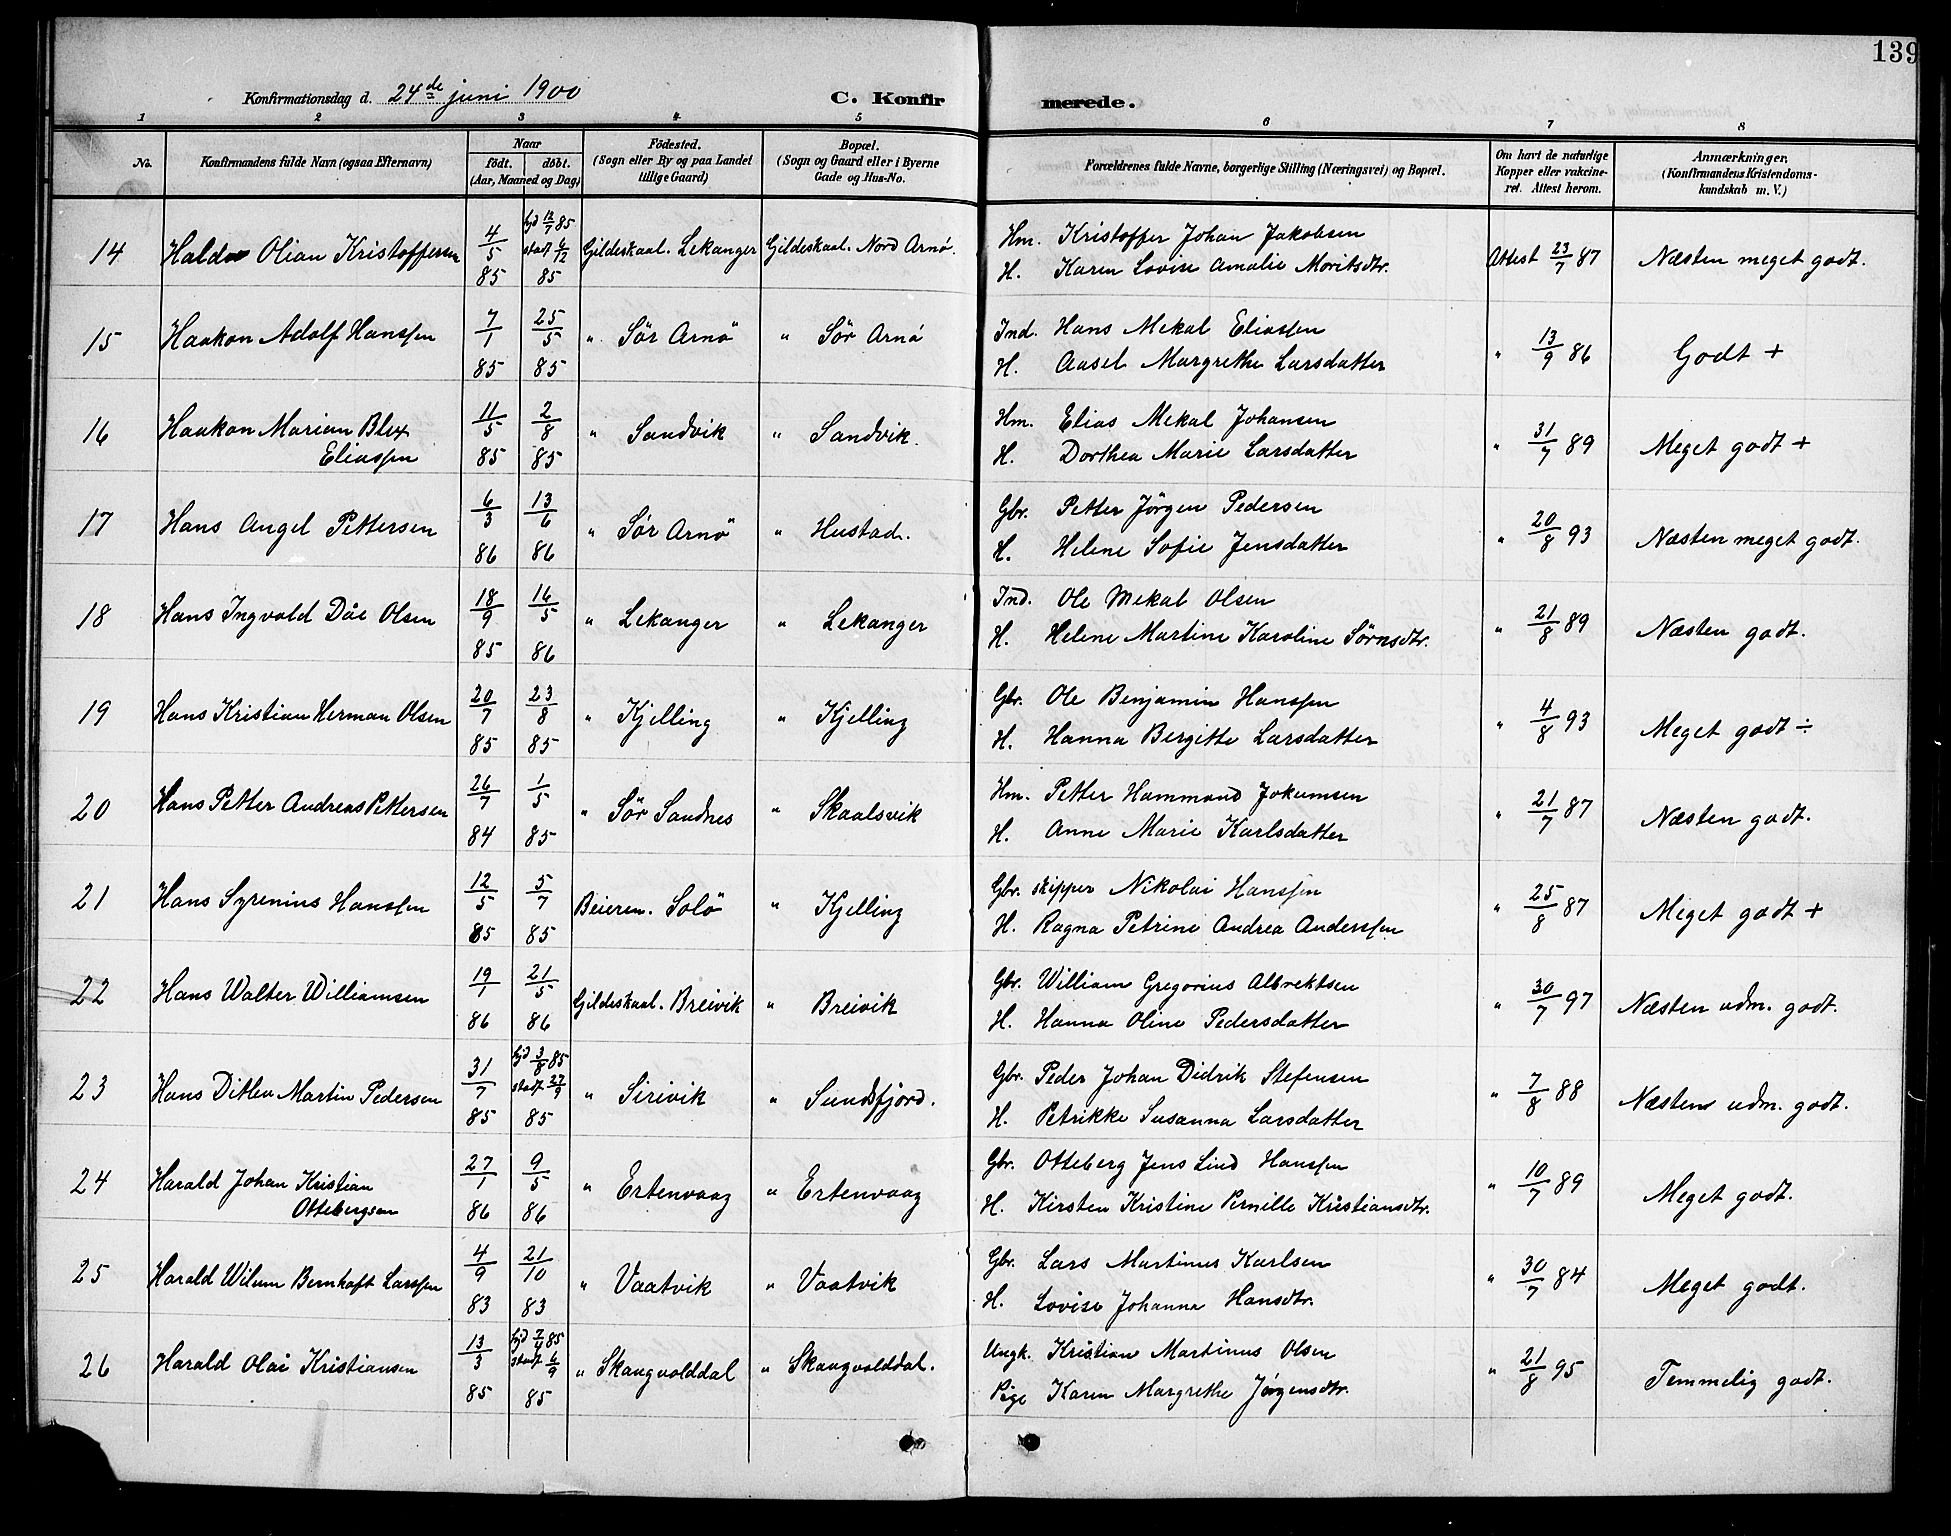 139
Konfirmationsdag d. 24de juni 1900 C. Konfirmerede.
1 2 3 4 5 6 7 8
No. Konfirmandens fulde Navn (ogsaa Efternavn) Naar født. døbt. (Aar, Maaned og Dag) Födested. (Sogn eller By og paa Landet tillige Gaard) Bopæl. (Sogn og Gaard eller i Byerne Gade og Hus-No. Forældrenes fulde Navne, borgerlige Stilling (Næringsvei) og Bopæl. Om havt de naturlige Kopper eller vakcineret. Attest herom. Anmærkninger. (Konfirmandens Kristendomskundskab m. V.)
14 Haldor Olian Kristoffersen 4/5 85 hjd 12/7 85 stadf 6/12 85 Gildeskaal. Lekanger Gildeskaal. Nord Arnø. Hm. Kristoffer Johan Jakobsen Attest 23/7 87 Næsten meget godt.
H. Karen Lovise Amalie Moritsdtr.
15 Haakon Adolf Hanssen 7/1 85 25/5 85 " Sör Arnö " Sör Arnö Ind. Hans Mekal Eliassen " 13/9 86 Godt +
H. Aasel Margrethe Larsdatter
16 Haakon Marius Blix Eliassen 11/5 85 2/8 85 " Sandvik " Sandvik. Hm. Elias Mekal Johansen " 31/7 89 Meget godt +
H. Dorthea Marie Larsdatter
17 Hans Angel Pettersen 6/3 86 13/6 86 " Sör Arnö " Hustad. Gbr. Petter Jörgen Pedersen " 20/8 93 Næsten meget godt.
H. Helene Sofie Jensdatter
18 Hans Ingvald Dåe Olsen 18/9 85 16/5 86 " Lekanger " Lekanger Ind. Ole Mekal Olsen " 21/8 89 Næsten godt.
H. Helene Martine Karoline Sörnsdtr.
19 Hans Kristian Herman Olsen 20/7 85 23/8 85 " Kjelling " Kjelling Gbr. Ole Benjamin Hanssen " 4/8 93 Meget godt ÷
H. Hanna Bergitte Larsdatter
20 Hans Petter Andreas Pettersen 26/7 84 1/5 85 " Sör Sandnes " Skaalsvik Hm. Petter Hammond Jokumsen " 21/7 87 Næsten godt.
H. Anne Marie Karlsdatter
21 Hans Syrenius Hanssen 12/5 85 5/7 85 Beieren. Solö " Kjelling Gbr. skipper Nikolai Hanssen " 25/8 87 Meget godt +
H. Ragna Petrine Andrea Anderssen
22 Hans Walter Williamsen 19/1 86 21/5 86 Gildeskaal. Breivik " Breivik Gbr. William Gregorius Albrektsen " 30/7 97 Næsten udm. godt.
H. Hanna Oline Pedersdatter
23 Hans Ditlev Martin Pedersen 31/7 85 hjd 3/8 85 stadf 27/9 85 " Sirivik " Sundsfjord. Gbr. Peder Johan Didrik Stefensen " 7/8 88 Næsten udm. godt.
H. Petrikke Susanna Larsdatter
24 Harald Johan Kristian Ottebergsen 27/1 86 9/5 86 " Ertenvaag " Ertenvaag Gbr. Otteberg Jens Lind Hanssen " 10/7 89 Meget godt.
H. Kirsten Kristine Pernille Kristiansdtr.
25 Harald Wilum Bernhoft Larssen 4/9 83 21/10 83 " Vaatvik " Vaatvik Gbr. Lars Martinus Karlsen " 30/7 84 Meget godt.
H. Lovise Johanna Hansdtr.
26 Harald Olai Kristiansen 13/3 85 hjd 7/4 85 stadf 6/9 85 " Skaugvolddal " Skaugvolddal. Ungk. Kristian Martinus Olsen " 21/8 95 Temmelig godt.
Pige Karen Margrethe Jörgensdtr.